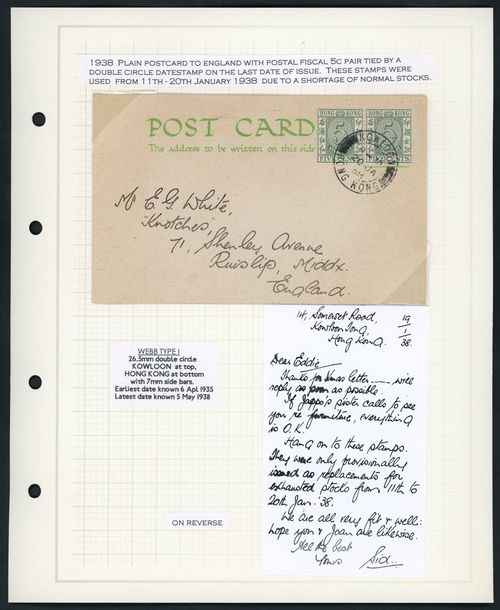 1938 PLAIN POSTCARD TO ENGLAND WITH POSTAL FISCAL 5C PAIR TIED BY A
DOUBLE CIRCLE DATESTAMP ON THE LAST DATE OF ISSUE. THESE STAMPS WERE
USED FROM 11TH - 20TH JANUARY 1938 DUE TO A SHORTAGE OF NORMAL STOCKS.
POST CARD
The address to be written on this side
HONG KONG HONG KONG
FIVE CENTS
KOWLOON
HONG KONG
Mr E. G. White,
'Knotches',
71, Shenley Avenue
Ruislip, Middx.
England.
14, Somerset Road,
Kowloon Tong,
Hong Kong.
19/1/38.
Dear Eddie
Thanks for Xmas letter —— will
reply as soon as possible.
If Jappo's sister calls to see
you re furniture, everything
is O.K.
Hang on to these stamps.
They were only provisionally
issued as replacements for
exhausted stocks from 11th to
20th Jan. '38.
We are all very fit & well:
hope you & Joan are likewise.
All the best
Yours Sid..
WEBB TYPE I
26.5mm double circle
KOWLOON at top,
HONG KONG at bottom
with 7mm side bars.
Earliest date known 6 Apl 1935
Latest date known 5 May 1938
ON REVERSE